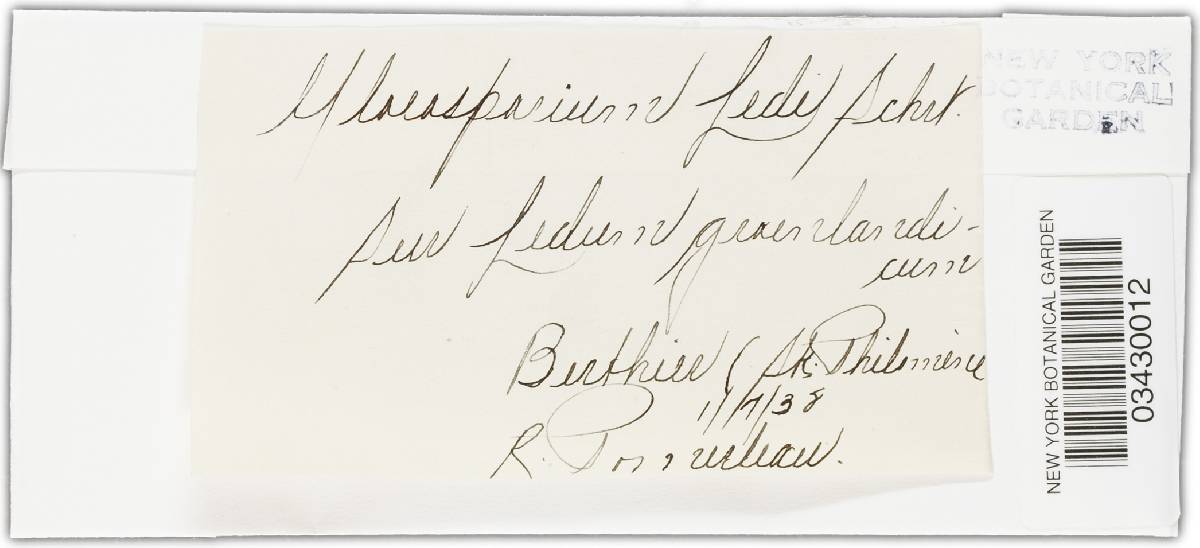 Gloeosporium Ledi Schrt.
Sur Ledum groenlandi-
cum
Berthier (Ste Philomène
1/7/38
R. Pomerleau.
NEW YORK
BOTANICAL
GARDEN
NEW YORK BOTANICAL GARDEN
03430012